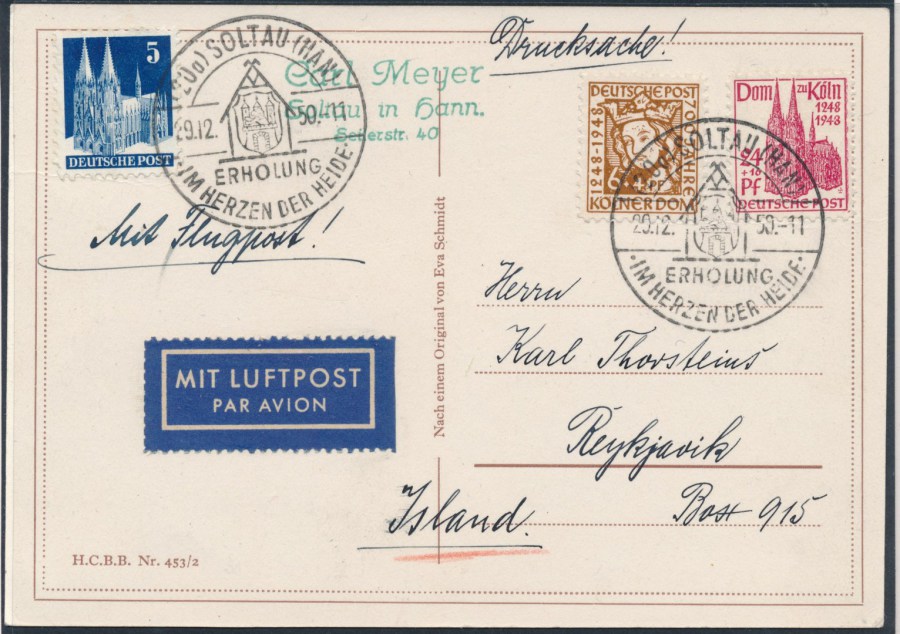 Drucksache!
5
DEUTSCHE POST
(20a) SOLTAU (HAN)
29.12. 50.-11
ERHOLUNG
·IM HERZEN DER HEIDE·
Carl Meyer
Soltau in Hann.
40
DEUTSCHE POST
1248-1948
700 JAHRE
6
PF
KÖLNER DOM
Dom zu Köln
1248
1948
24
+16
PF
DEUTSCHE POST
(20a) SOLTAU (HAN)
29.12. 50.-11
ERHOLUNG
·IM HERZEN DER HEIDE·
Mit Flugpost!
MIT LUFTPOST
PAR AVION
Nach einem Original von Eva Schmidt
Herrn
Karl Thorsteins
Reykjavik
Box 915
Island.
H.C.B.B. Nr. 453/2